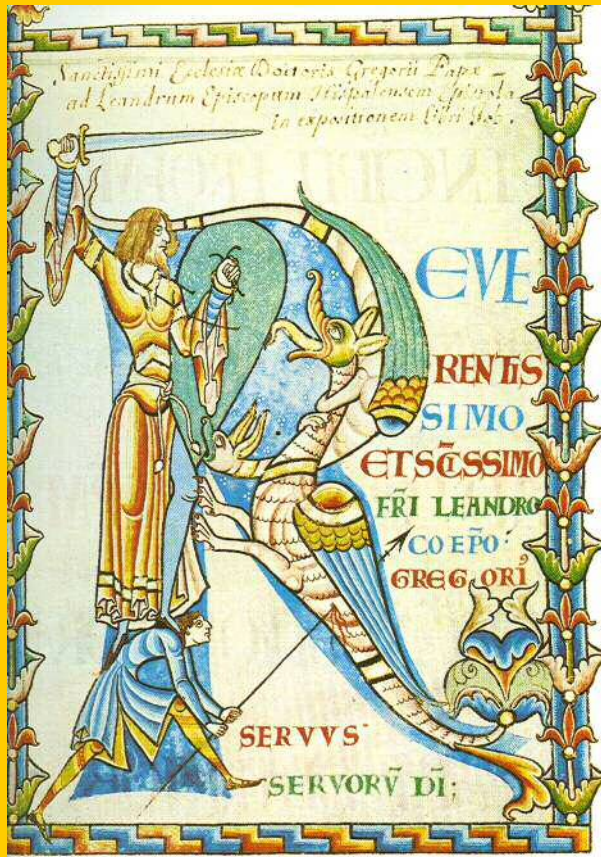 Sanctissimi Ecclesiæ Doctoris Gregorii Papæ
ad Leandrum Episcopum Hispalensem Epistola
in expositionem libri Job.
R EVE
RENTIS
SIMO
ET SC̄ISSIMO
FR̄I LEANDRO
CO EP̄O:
GREGORI᾿
SERVVS
SERVORV̄ DĪ;